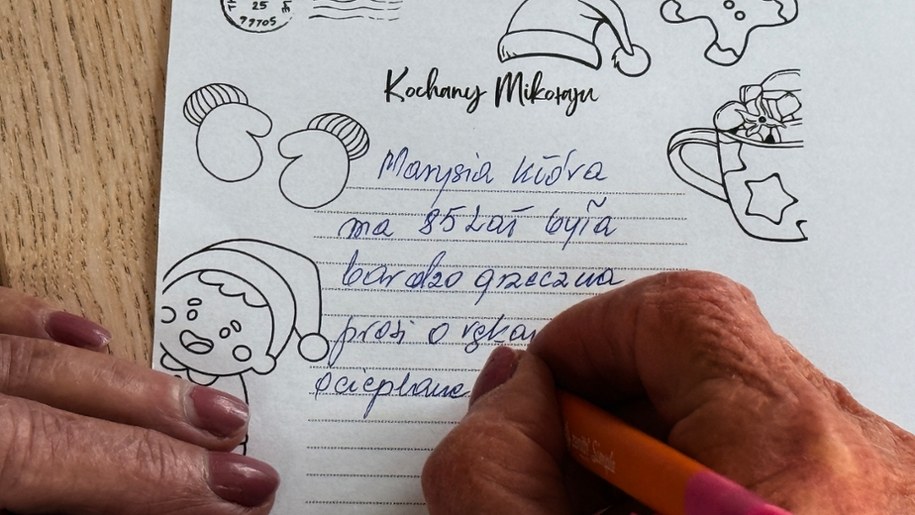 25
99705
Kochany Mikołaju
Marysia która
ma 85 lat była
bardzo grzeczna
prosi o ręka
ocieplane